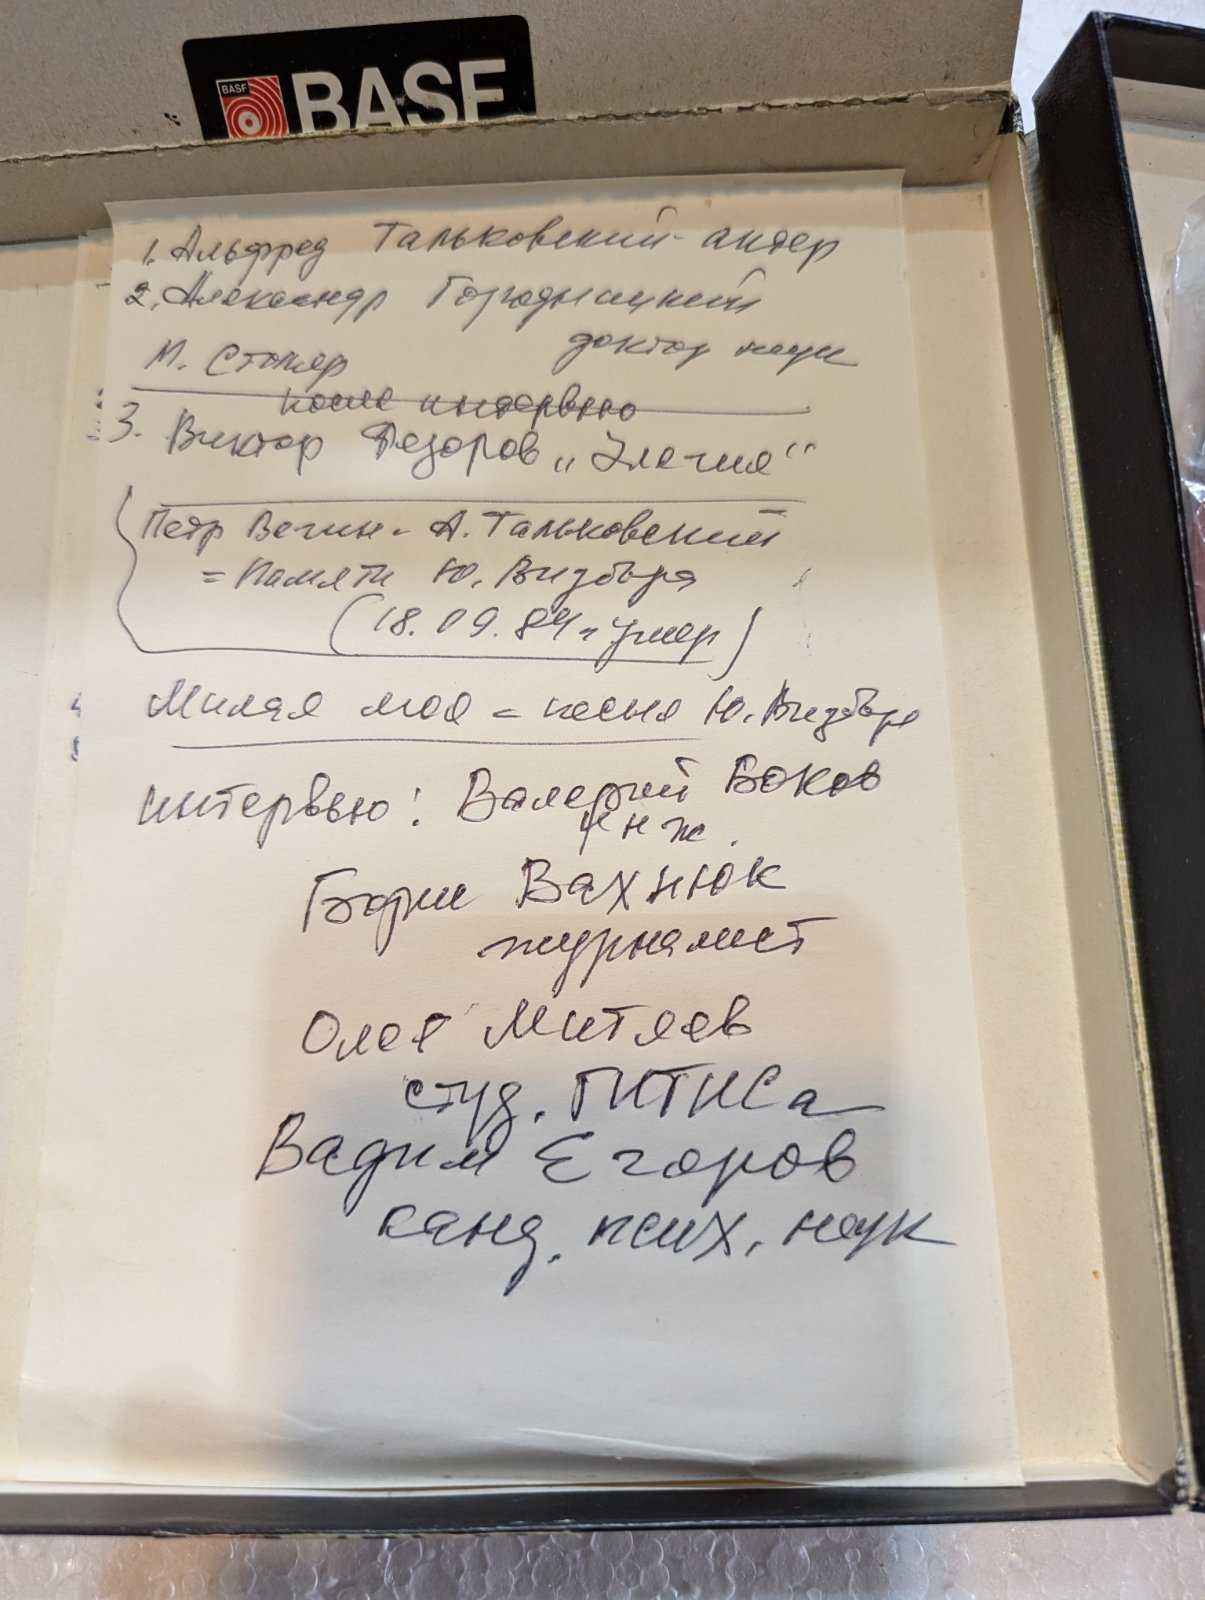 BASF
BASF
1. Альфред Тальковский - актер
2. Александр Городницкий
доктор наук
М. Столяр
после интервью
3. Виктор Федоров „Элегия“
Петр Вегин - А. Тальковский
= Памяти Ю. Визбора
(18.09.84 = умер)
4 Милая моя = песня Ю. Визбора
5
интервью: Валерий Боков
инж.
Борис Вахнюк
журналист
Олег Митяев
студ. ГИТИСа
Вадим Егоров
канд. псих. наук